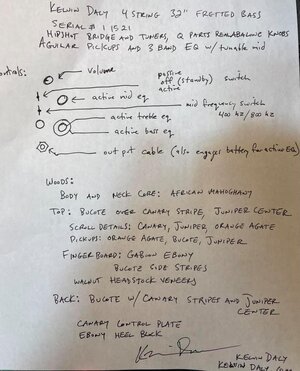 KELVIN DALY 4 STRING 32" FRETTED BASS
SERIAL # 11521
HIPSHOT BRIDGE AND TUNERS, Q PARTS REALABALONE KNOBS
AGUILAR PICKUPS AND 3 BAND EQ w/ tunable mid
ontrols:
volume
passive
off (standby) switch
active
active mid eq
mid frequency switch
400 hz/800 hz
active treble eq
active bass eq
output cable (also engages battery for active EQ)
WOODS:
BODY AND NECK CORE: AFRICAN MAHOGHANY
TOP: BUCOTE OVER CANARY STRIPE, JUNIPER CENTER
SCROLL DETAILS: CANARY, JUNIPER, ORANGE AGATE
PICKUPS: ORANGE AGATE, BUCOTE, JUNIPER
FINGERBOARD: GABOON EBONY
BUCOTE SIDE STRIPES
WALNUT HEADSTOCK VENEERS
BACK: BUCOTE W/ CANARY STRIPES AND JUNIPER
CENTER
CANARY CONTROL PLATE
EBONY HEEL BLOCK
KELVIN DALY
KELVIN DALY